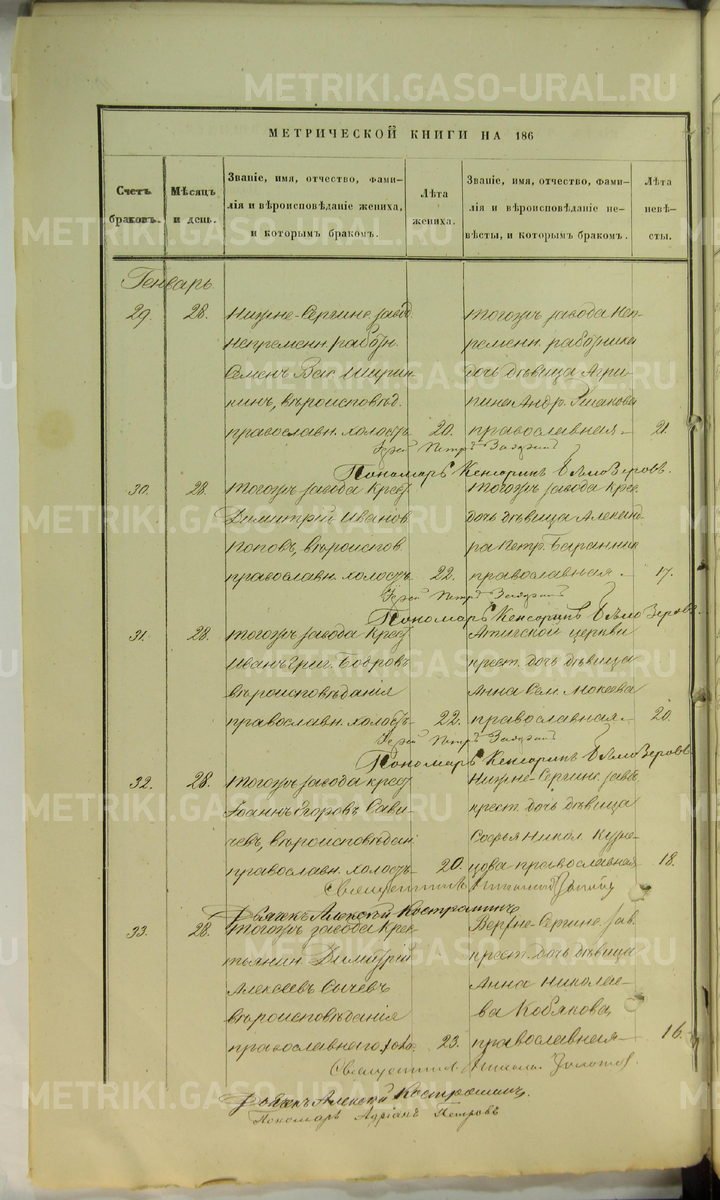 METRIKI.GASO-URAL.RU
МЕТРИЧЕСКОЙ КНИГИ НА 186
Счетъ браковъ.
Мѣсяцъ и день.
Званіе, имя, отчество, фами-
лія и вѣроисповѣданіе жениха,
и которымъ бракомъ.
Лѣта жениха.
Званіе, имя, отчество, фами-
лія и вѣроисповѣданіе не-
вѣсты, и которымъ бракомъ.
Лѣта невѣ-
сты.
Генварь
29. 28. Нижне-Сергинс. завод
непременн. работн.
Семенъ Вас. Ширин-
кинъ, вѣроисповѣд.
православн. холостъ 20.
тогожъ завода неп-
ременн. работника
дочь дѣвица Агри-
пина Андр.
православная 21.
Іерей Петръ
Пономарь Кенсоринъ Бѣлозеровъ.
30. 28. тогожъ завода крест.
Димитрій Иванов
Поповъ, вѣроиспов.
православн. холостъ 22.
тогожъ завода крес.
дочь дѣвица Александ-
ра Петр. Баранник
православная 17.
Іерей Петръ
Пономарь Кенсоринъ Бѣлозеровъ.
31. 28. тогожъ завода крест.
Иванъ Григ. Бобровъ
вѣроисповѣданія
православн. холостъ 22.
Атигской церкви
крест. дочь дѣвица
Анна Сем. Мокеева
православная 20.
Іерей Петръ
Пономарь Кенсоринъ Бѣлозеровъ.
32. 28. тогожъ завода крест.
Іоаннъ Егоровъ Сави-
чевъ, вѣроисповѣдан
православн. холостъ 20.
Нижне-Сергинс. завод
крест. дочь дѣвица
Софья Никол. Кузне-
цова православная 18.
Священникъ
Дьячекъ Алексѣй Костромин
33. 28. тогожъ завода крес-
тьянин Димитрій
Алексеевъ Сычевъ
вѣроисповѣданія
православнаго, холо. 23.
Верхне-Сергинс. зав.
крест. дочь дѣвица
Анна Николае-
ва Кобякова,
православная 16.
Священникъ
Дьячекъ Алексѣй Костромин.
Пономарь Адріанъ Петровъ